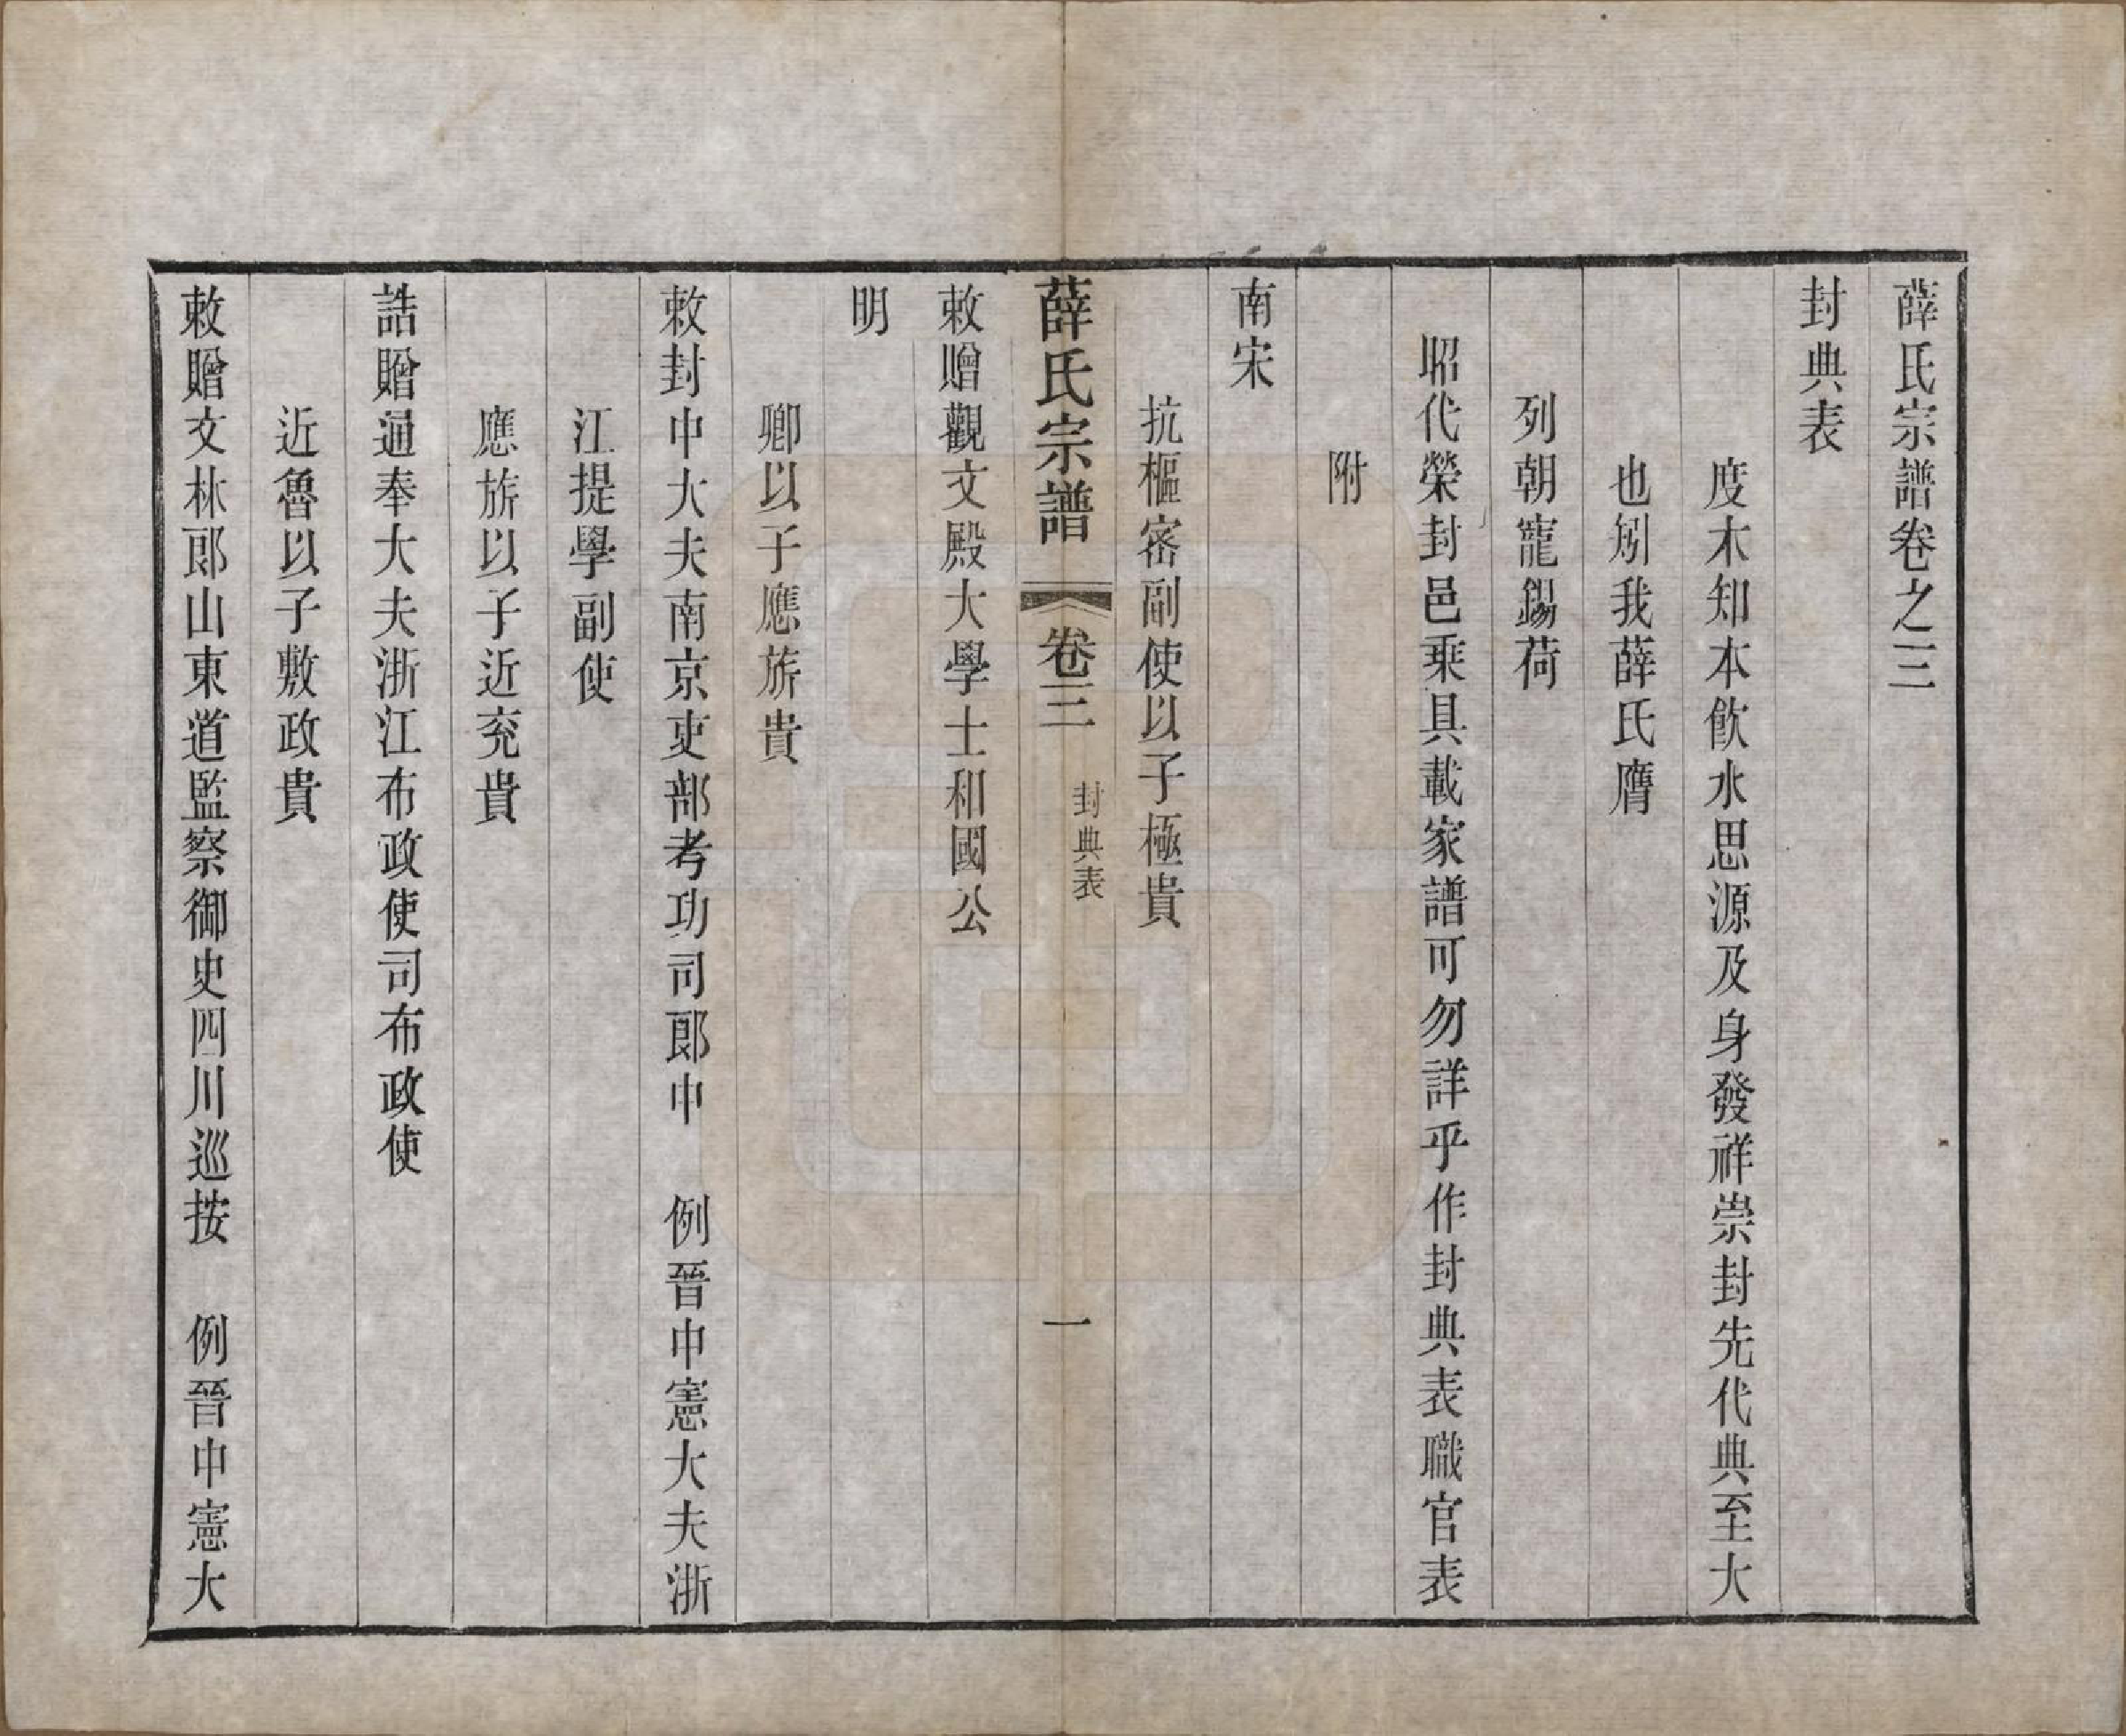 薛氏宗譜卷之三
封典表
度木知本飲水思源及身發祥崇封先代典至大
也矧我薛氏膺
列朝寵錫荷
昭代榮封邑乘具載家譜可勿詳乎作封典表職官表
附
南宋
抗樞密副使以子極貴
薛氏宗譜 卷三 封典表 一
敕贈觀文殿大學士和國公
明
卿以子應旂貴
敕封中大夫南京吏部考功司郎中 例晉中憲大夫浙
江提學副使
應旂以子近兖貴
誥贈通奉大夫浙江布政使司布政使
近魯以子敷政貴
敕贈文林郎山東道監察御史四川巡按 例晉中憲大